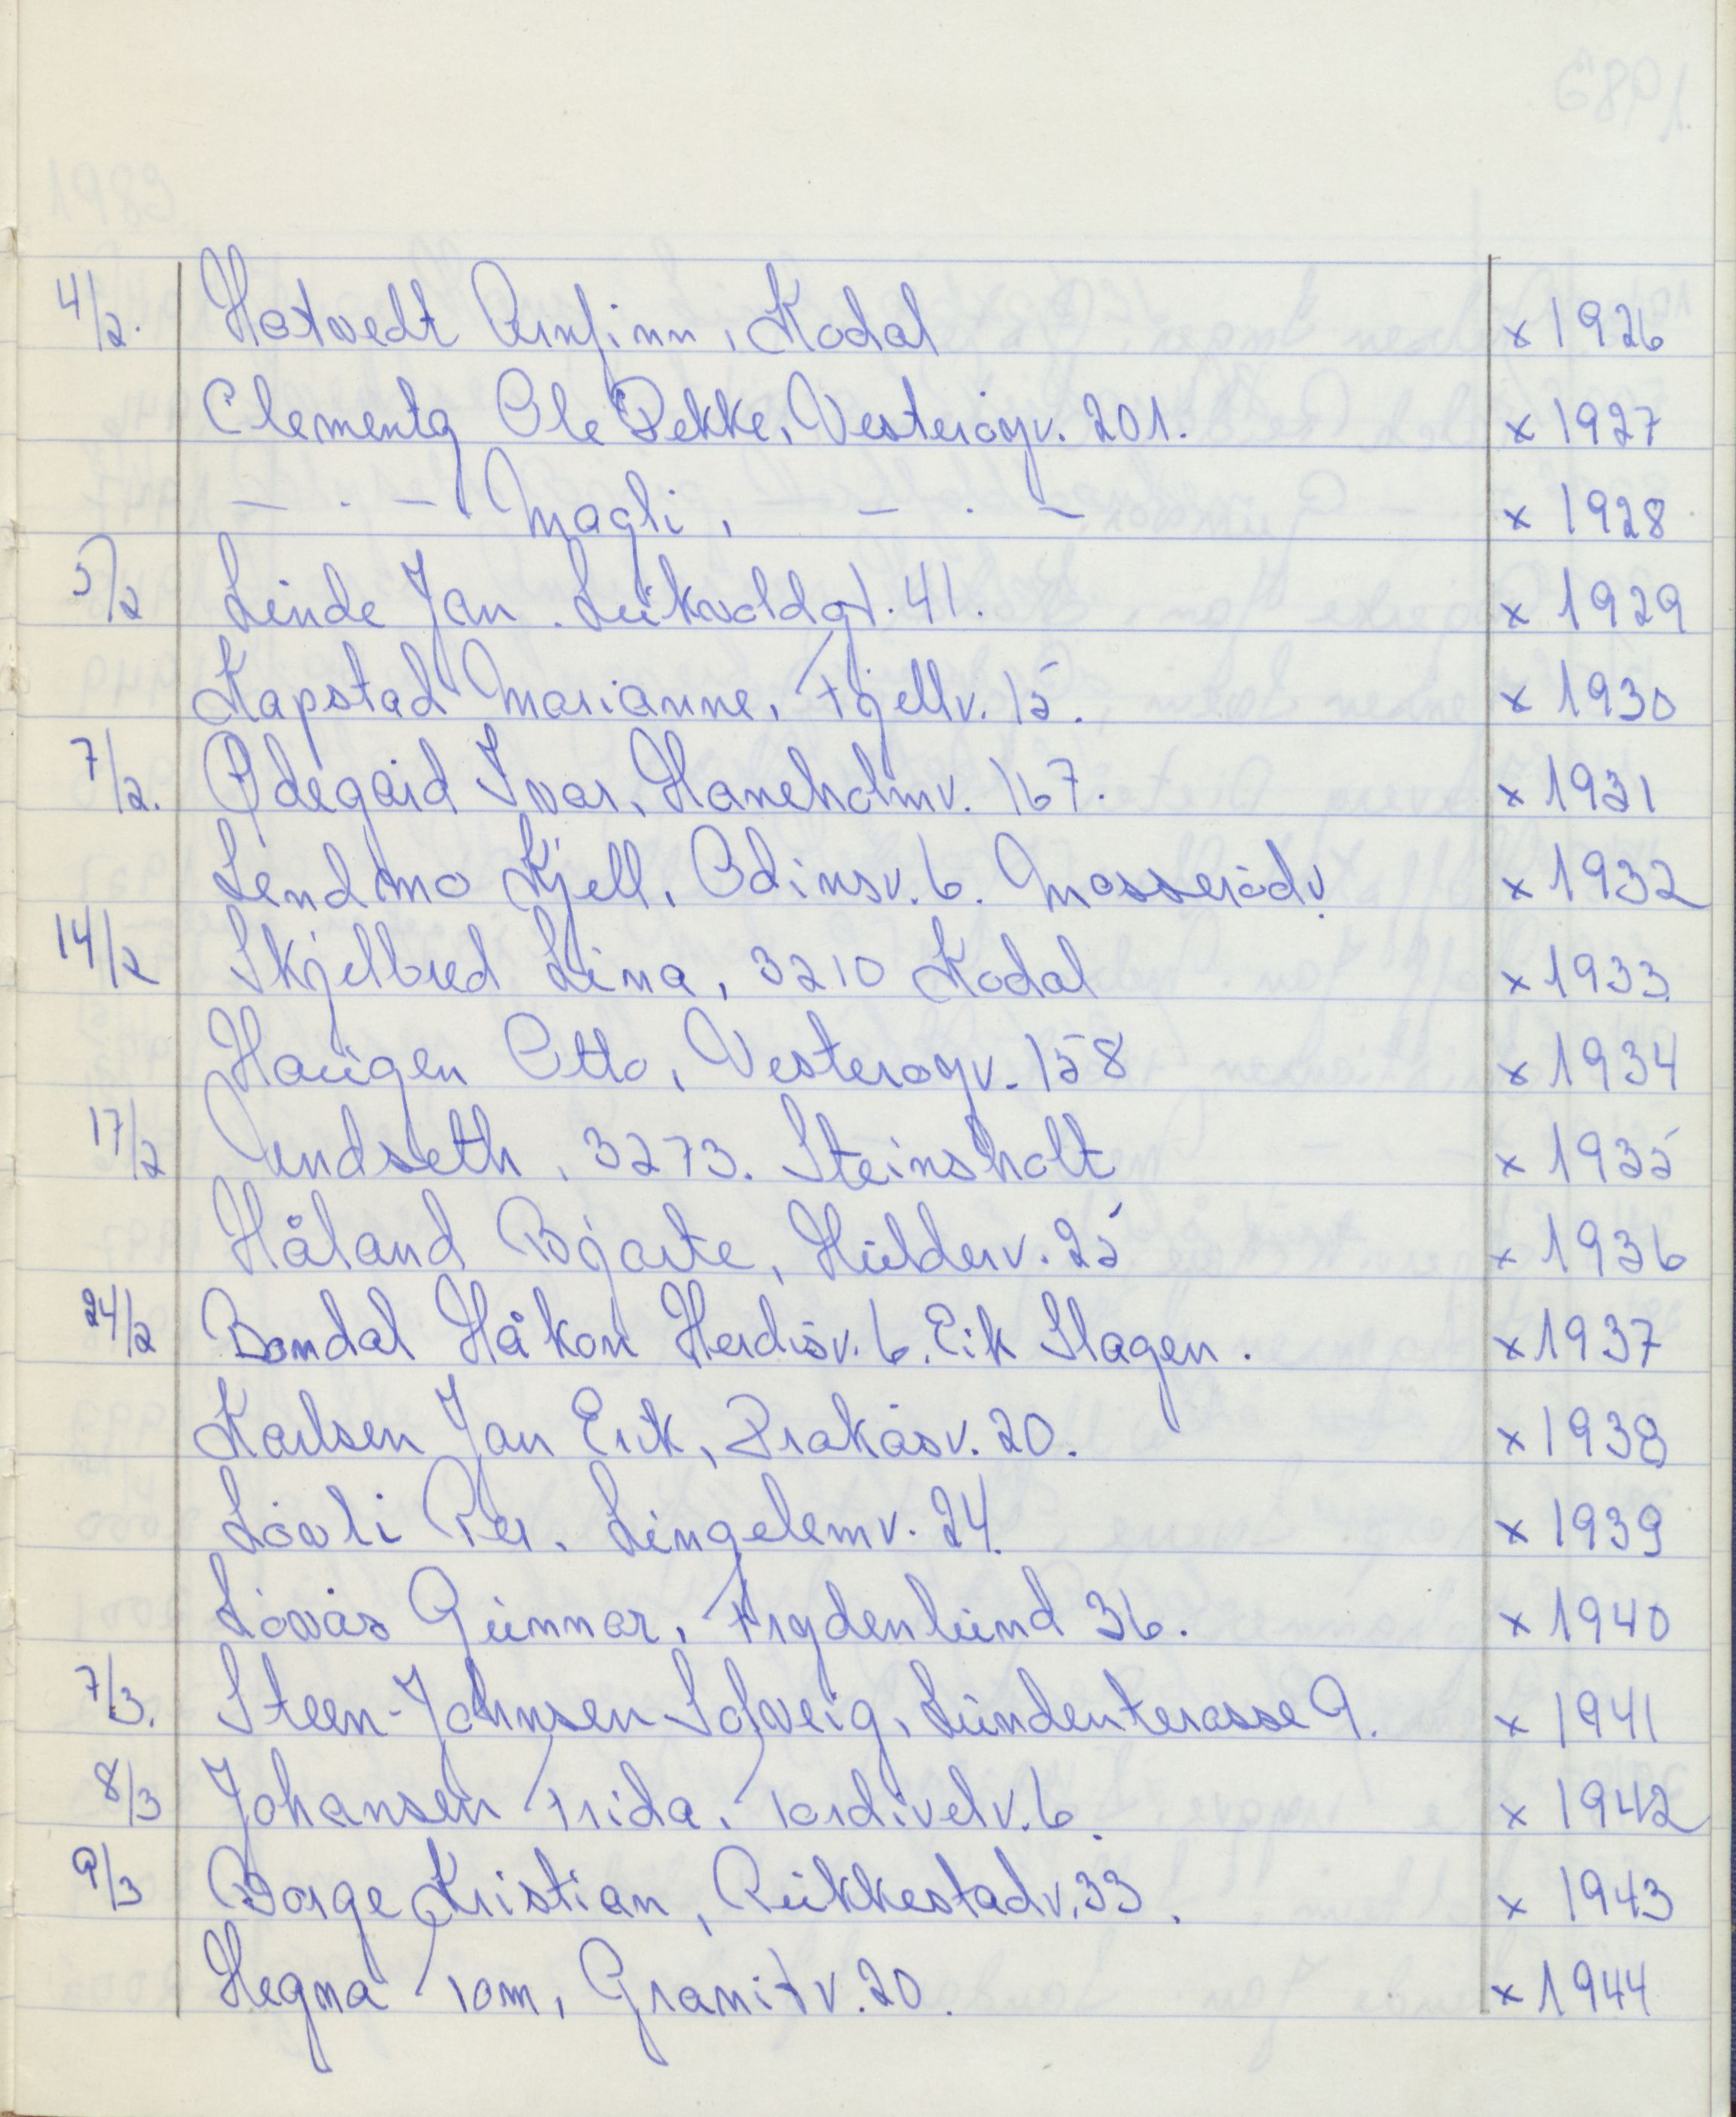 4/2. Hotvedt Arnfinn, Kodal x 1926
Clementz Ole Bekke, Vesterøyv. 201. x 1927
— . — Magli, — . — x 1928
5/2 Linde Jan. Leikvoldgt. 41. x 1929
Kapstad Marianne, Fjellv. 15. x 1930
7/2. Ødegård Ivar, Haneholmv. 167. x 1931
Lindmo Kjell, Odinsv. 6. Mosserødv. x 1932
14/2 Skjelbred Lina, 3210 Kodal x 1933
Haugen Otto, Vesterøyv. 158 x 1934
17/2 Rundseth, 3273. Steinsholt x 1935
Håland Bjarte, Hulderv. 25 x 1936
24/2 Bondal Håkon Herdisv. 6. Eik Slagen. x 1937
Karlsen Jan Erik, Bråkåsv. 20. x 1938
Løvli Per. Lingelemv. 24. x 1939
Løvås Gunnar, Frydenlund 36. x 1940
7/3. Steen-Johnsen Solveig, Lundenterasse 9. x 1941
8/3 Johansen Frida, Tordivelv. 6. x 1942
9/3 Borge Kristian, Rukkestadv. 33. x 1943
Hegna Tom, Granitv. 20. x 1944